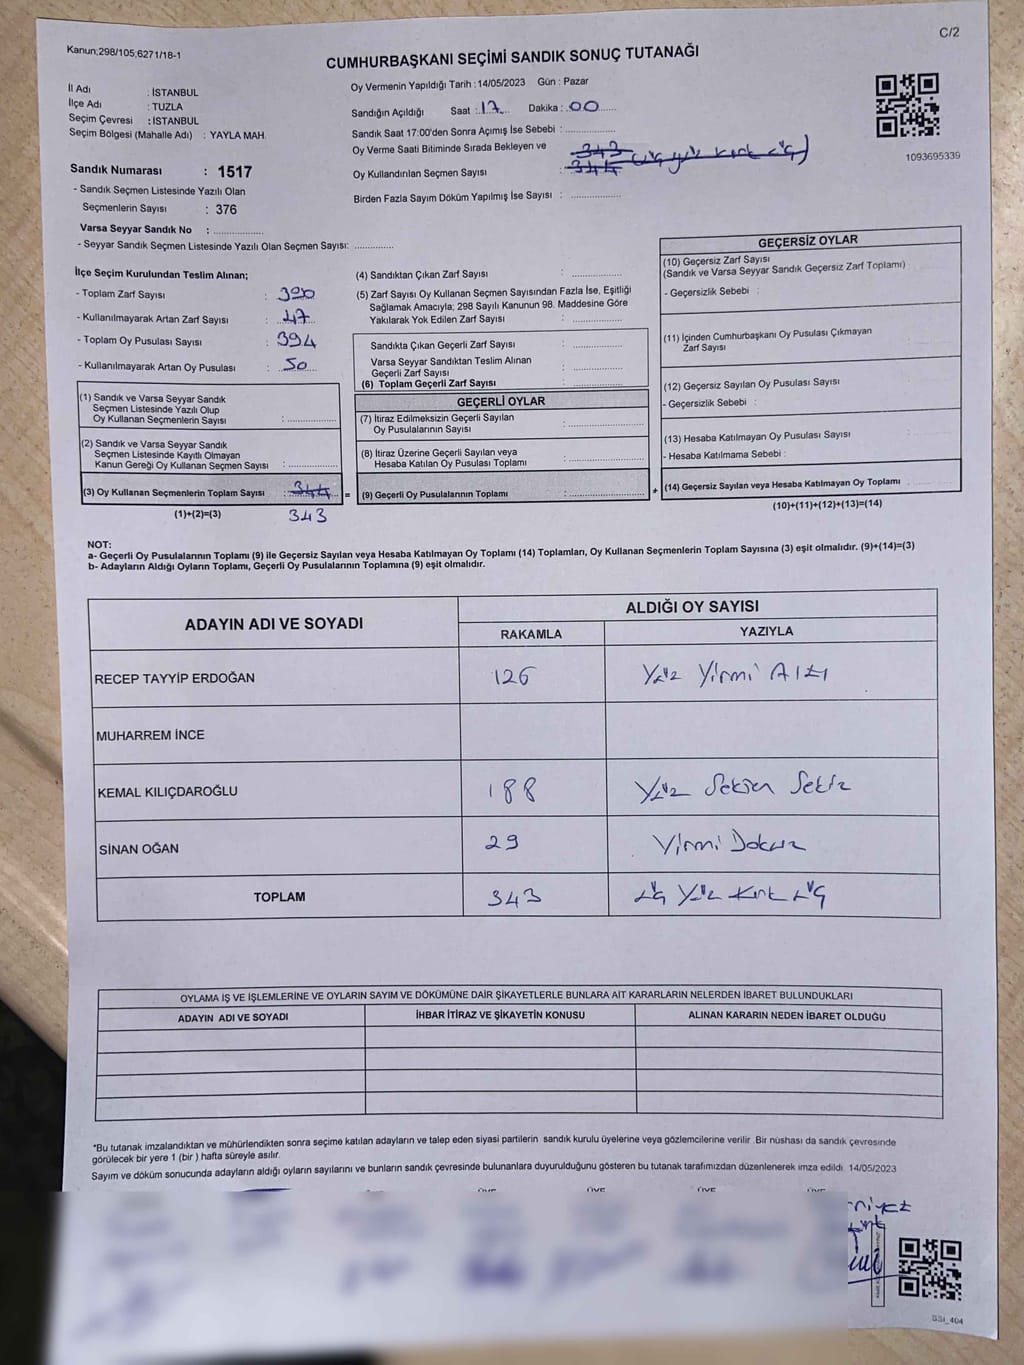 C/2
Kanun;298/105,6271/18-1
CUMHURBAŞKANI SEÇİMİ SANDIK SONUÇ TUTANAĞI
İl Adı : İSTANBUL
İlçe Adı : TUZLA
Seçim Çevresi : İSTANBUL
Seçim Bölgesi (Mahalle Adı) : YAYLA MAH.
Sandık Numarası : 1517
- Sandık Seçmen Listesinde Yazılı Olan
Seçmenlerin Sayısı : 376
Varsa Seyyar Sandık No :
- Seyyar Sandık Seçmen Listesinde Yazılı Olan Seçmen Sayısı:
Oy Vermenin Yapıldığı Tarih : 14/05/2023 Gün : Pazar
Sandığın Açıldığı Saat : 17 Dakika : 00
Sandık Saat 17:00'den Sonra Açımış İse Sebebi :
Oy Verme Saati Bitiminde Sırada Bekleyen ve
Oy Kullandırılan Seçmen Sayısı : 343
344
Birden Fazla Sayım Döküm Yapılmış İse Sayısı :
1093695339
İlçe Seçim Kurulundan Teslim Alınan;
- Toplam Zarf Sayısı : 390
- Kullanılmayarak Artan Zarf Sayısı : 47
- Toplam Oy Pusulası Sayısı : 394
- Kullanılmayarak Artan Oy Pusulası : 50
(1) Sandık ve Varsa Seyyar Sandık
Seçmen Listesinde Yazılı Olup
Oy Kullanan Seçmenlerin Sayısı :
(2) Sandık ve Varsa Seyyar Sandık
Seçmen Listesinde Kayıtlı Olmayan
Kanun Gereği Oy Kullanan Seçmen Sayısı :
(3) Oy Kullanan Seçmenlerin Toplam Sayısı : 344 =
(1)+(2)=(3) 343
(4) Sandıktan Çıkan Zarf Sayısı :
(5) Zarf Sayısı Oy Kullanan Seçmen Sayısından Fazla İse, Eşitliği
Sağlamak Amacıyla; 298 Sayılı Kanunun 98. Maddesine Göre
Yakılarak Yok Edilen Zarf Sayısı :
Sandıkta Çıkan Geçerli Zarf Sayısı :
Varsa Seyyar Sandıktan Teslim Alınan
Geçerli Zarf Sayısı :
(6) Toplam Geçerli Zarf Sayısı :
GEÇERLİ OYLAR
(7) İtiraz Edilmeksizin Geçerli Sayılan
Oy Pusulalarının Sayısı :
(8) İtiraz Üzerine Geçerli Sayılan veya
Hesaba Katılan Oy Pusulası Toplamı :
(9) Geçerli Oy Pusulalarının Toplamı : +
GEÇERSİZ OYLAR
(10) Geçersiz Zarf Sayısı
(Sandık ve Varsa Seyyar Sandık Geçersiz Zarf Toplamı)
- Geçersizlik Sebebi :
(11) İçinden Cumhurbaşkanı Oy Pusulası Çıkmayan
Zarf Sayısı
(12) Geçersiz Sayılan Oy Pusulası Sayısı
- Geçersizlik Sebebi :
(13) Hesaba Katılmayan Oy Pusulası Sayısı
- Hesaba Katılmama Sebebi :
(14) Geçersiz Sayılan veya Hesaba Katılmayan Oy Toplamı
(10)+(11)+(12)+(13)=(14)
NOT:
a- Geçerli Oy Pusulalarının Toplamı (9) ile Geçersiz Sayılan veya Hesaba Katılmayan Oy Toplamı (14) Toplamları, Oy Kullanan Seçmenlerin Toplam Sayısına (3) eşit olmalıdır. (9)+(14)=(3)
b- Adayların Aldığı Oyların Toplamı, Geçerli Oy Pusulalarının Toplamına (9) eşit olmalıdır.
ADAYIN ADI VE SOYADI
ALDIĞI OY SAYISI
RAKAMLA YAZIYLA
RECEP TAYYİP ERDOĞAN 126 Yüz Yirmi Altı
MUHARREM İNCE
KEMAL KILIÇDAROĞLU 188 Yüz Seksen Sekiz
SİNAN OĞAN 29 Yirmi Dokuz
TOPLAM 343 Üç Yüz Kırk Üç
OYLAMA İŞ VE İŞLEMLERİNE VE OYLARIN SAYIM VE DÖKÜMÜNE DAİR ŞİKAYETLERLE BUNLARA AİT KARARLARIN NELERDEN İBARET BULUNDUKLARI
ADAYIN ADI VE SOYADI İHBAR İTİRAZ VE ŞİKAYETİN KONUSU ALINAN KARARIN NEDEN İBARET OLDUĞU
*Bu tutanak imzalandıktan ve mühürlendikten sonra seçime katılan adayların ve talep eden siyasi partilerin sandık kurulu üyelerine veya gözlemcilerine verilir .Bir nüshası da sandık çevresinde
görülecek bir yere 1 (bir ) hafta süreyle asılır.
Sayım ve döküm sonucunda adayların aldığı oyların sayılarını ve bunların sandık çevresinde bulunanlara duyurulduğunu gösteren bu tutanak tarafımızdan düzenlenerek imza edildi. 14/05/2023